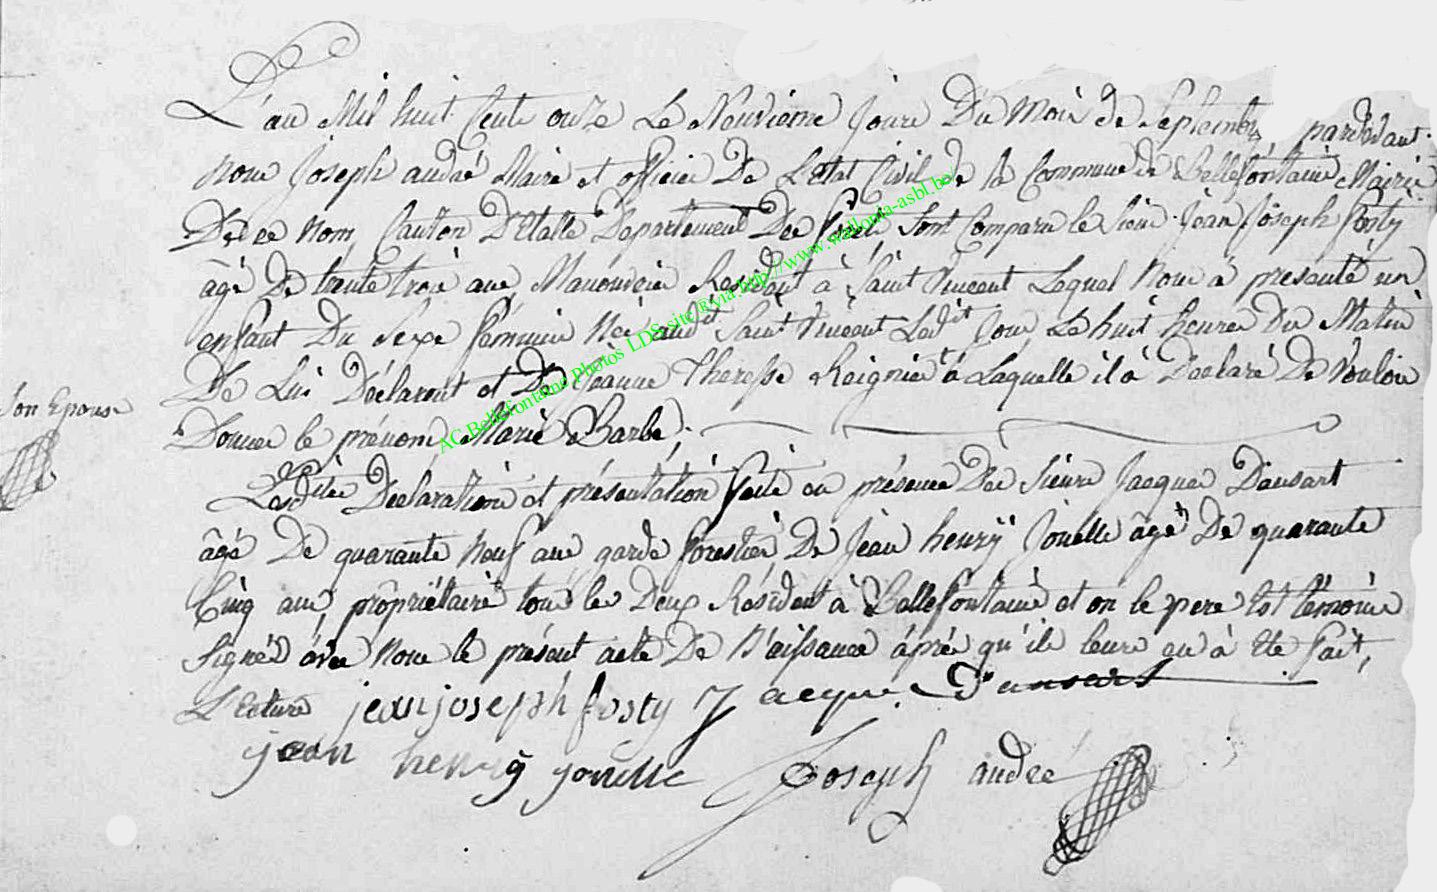 L'an Mil huit Cents onze Le Neuvieme Jour Du Mois de Septembre pardevant
Nous Joseph andré Maire et officier De L'etat Civil de la Commune de Bellefontaine Mairie
De ce Nom, Canton D'Etalle Departement Des forêts Sont Comparu le Sieur Jean Joseph fosty
âgé De trente trois ans Manouvrier Residant à Saint Vincent Lequel Nous à presenté un
enfant Du Sexe féminin Née audit Saint Vincent Ledit Jour Le huit heures Du Matin
De Lui Déclarant et De Jeanne Theresse Reignier à Laquelle il à Declaré De Vouloir
son Epouse
Donner le prénom, Marie Barbe;
Lesdites Déclarations et présentation faite en présence Des Sieurs Jacques Dansart
âgé De quarante Neuf ans garde forestier, De Jean henrÿ Jonette âgé De quarante
Cinq ans, propriétaire tous les Deux Résident à Bellefontaine et on le pere Est témoins
Signés avec Nous le présent acte De Naissance après qu'ils leurs en à Eté fait,
L'ecture jean joseph fosty Jacque Dansart
jean henry jonette Joseph andré
AC Bellefontaine Photos LDS site ® via http://www.wallonia-asbl.be